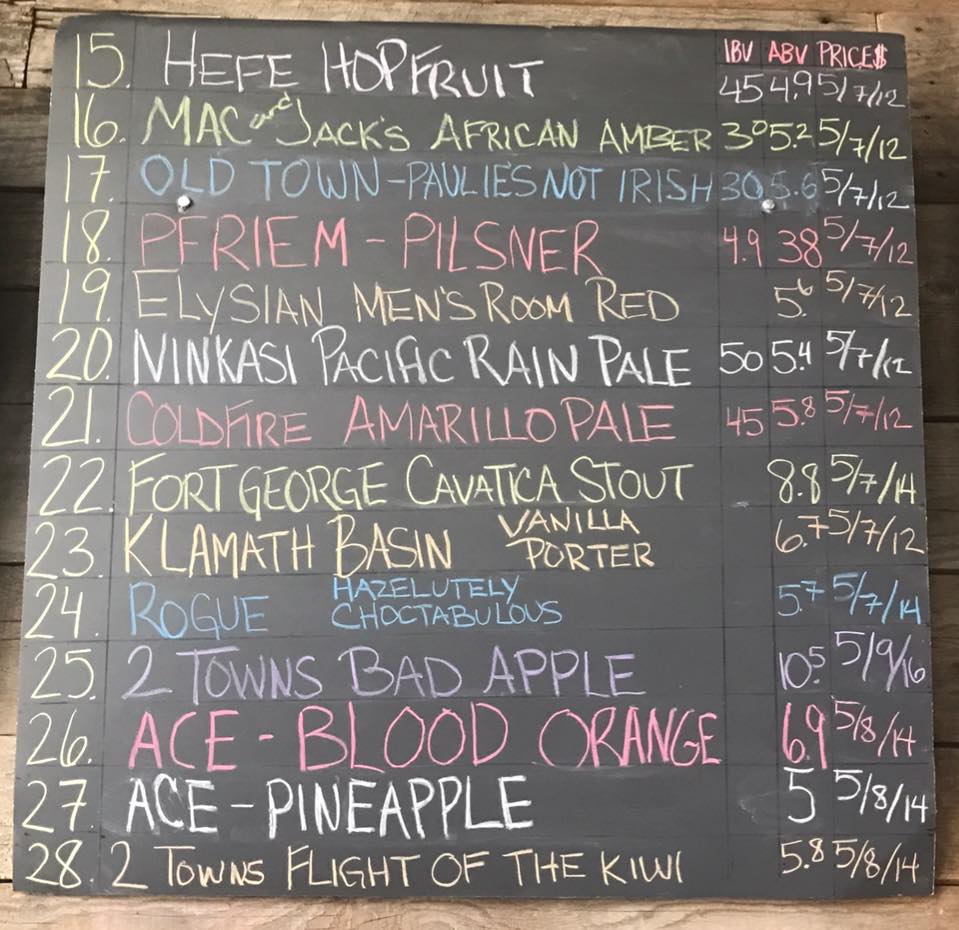 IBV ABV PRICE$
15. HEFE HOPFRUIT 45 4.9 5/7/12
16. MAC and JACK'S AFRICAN AMBER 30 5.2 5/7/12
17. OLD TOWN-PAULIE'S NOT IRISH 30 5.6 5/7/12
18. PFRIEM - PILSNER 4.9 38 5/7/12
19. ELYSIAN MEN'S ROOM RED 5.6 5/7/12
20. NINKASI PACIFIC RAIN PALE 50 5.4 5/7/12
21. COLDFIRE AMARILLO PALE 45 5.8 5/7/12
22. FORT GEORGE CAVATICA STOUT 8.8 5/7/14
23. KLAMATH BASIN VANILLA PORTER 6.7 5/7/12
24. ROGUE HAZELUTELY CHOCTABULOUS 5.7 5/7/14
25. 2 TOWNS BAD APPLE 10.5 5/9/16
26. ACE - BLOOD ORANGE 6.9 5/8/14
27. ACE - PINEAPPLE 5 5/8/14
28. 2 TOWNS FLIGHT OF THE KIWI 5.8 5/8/14